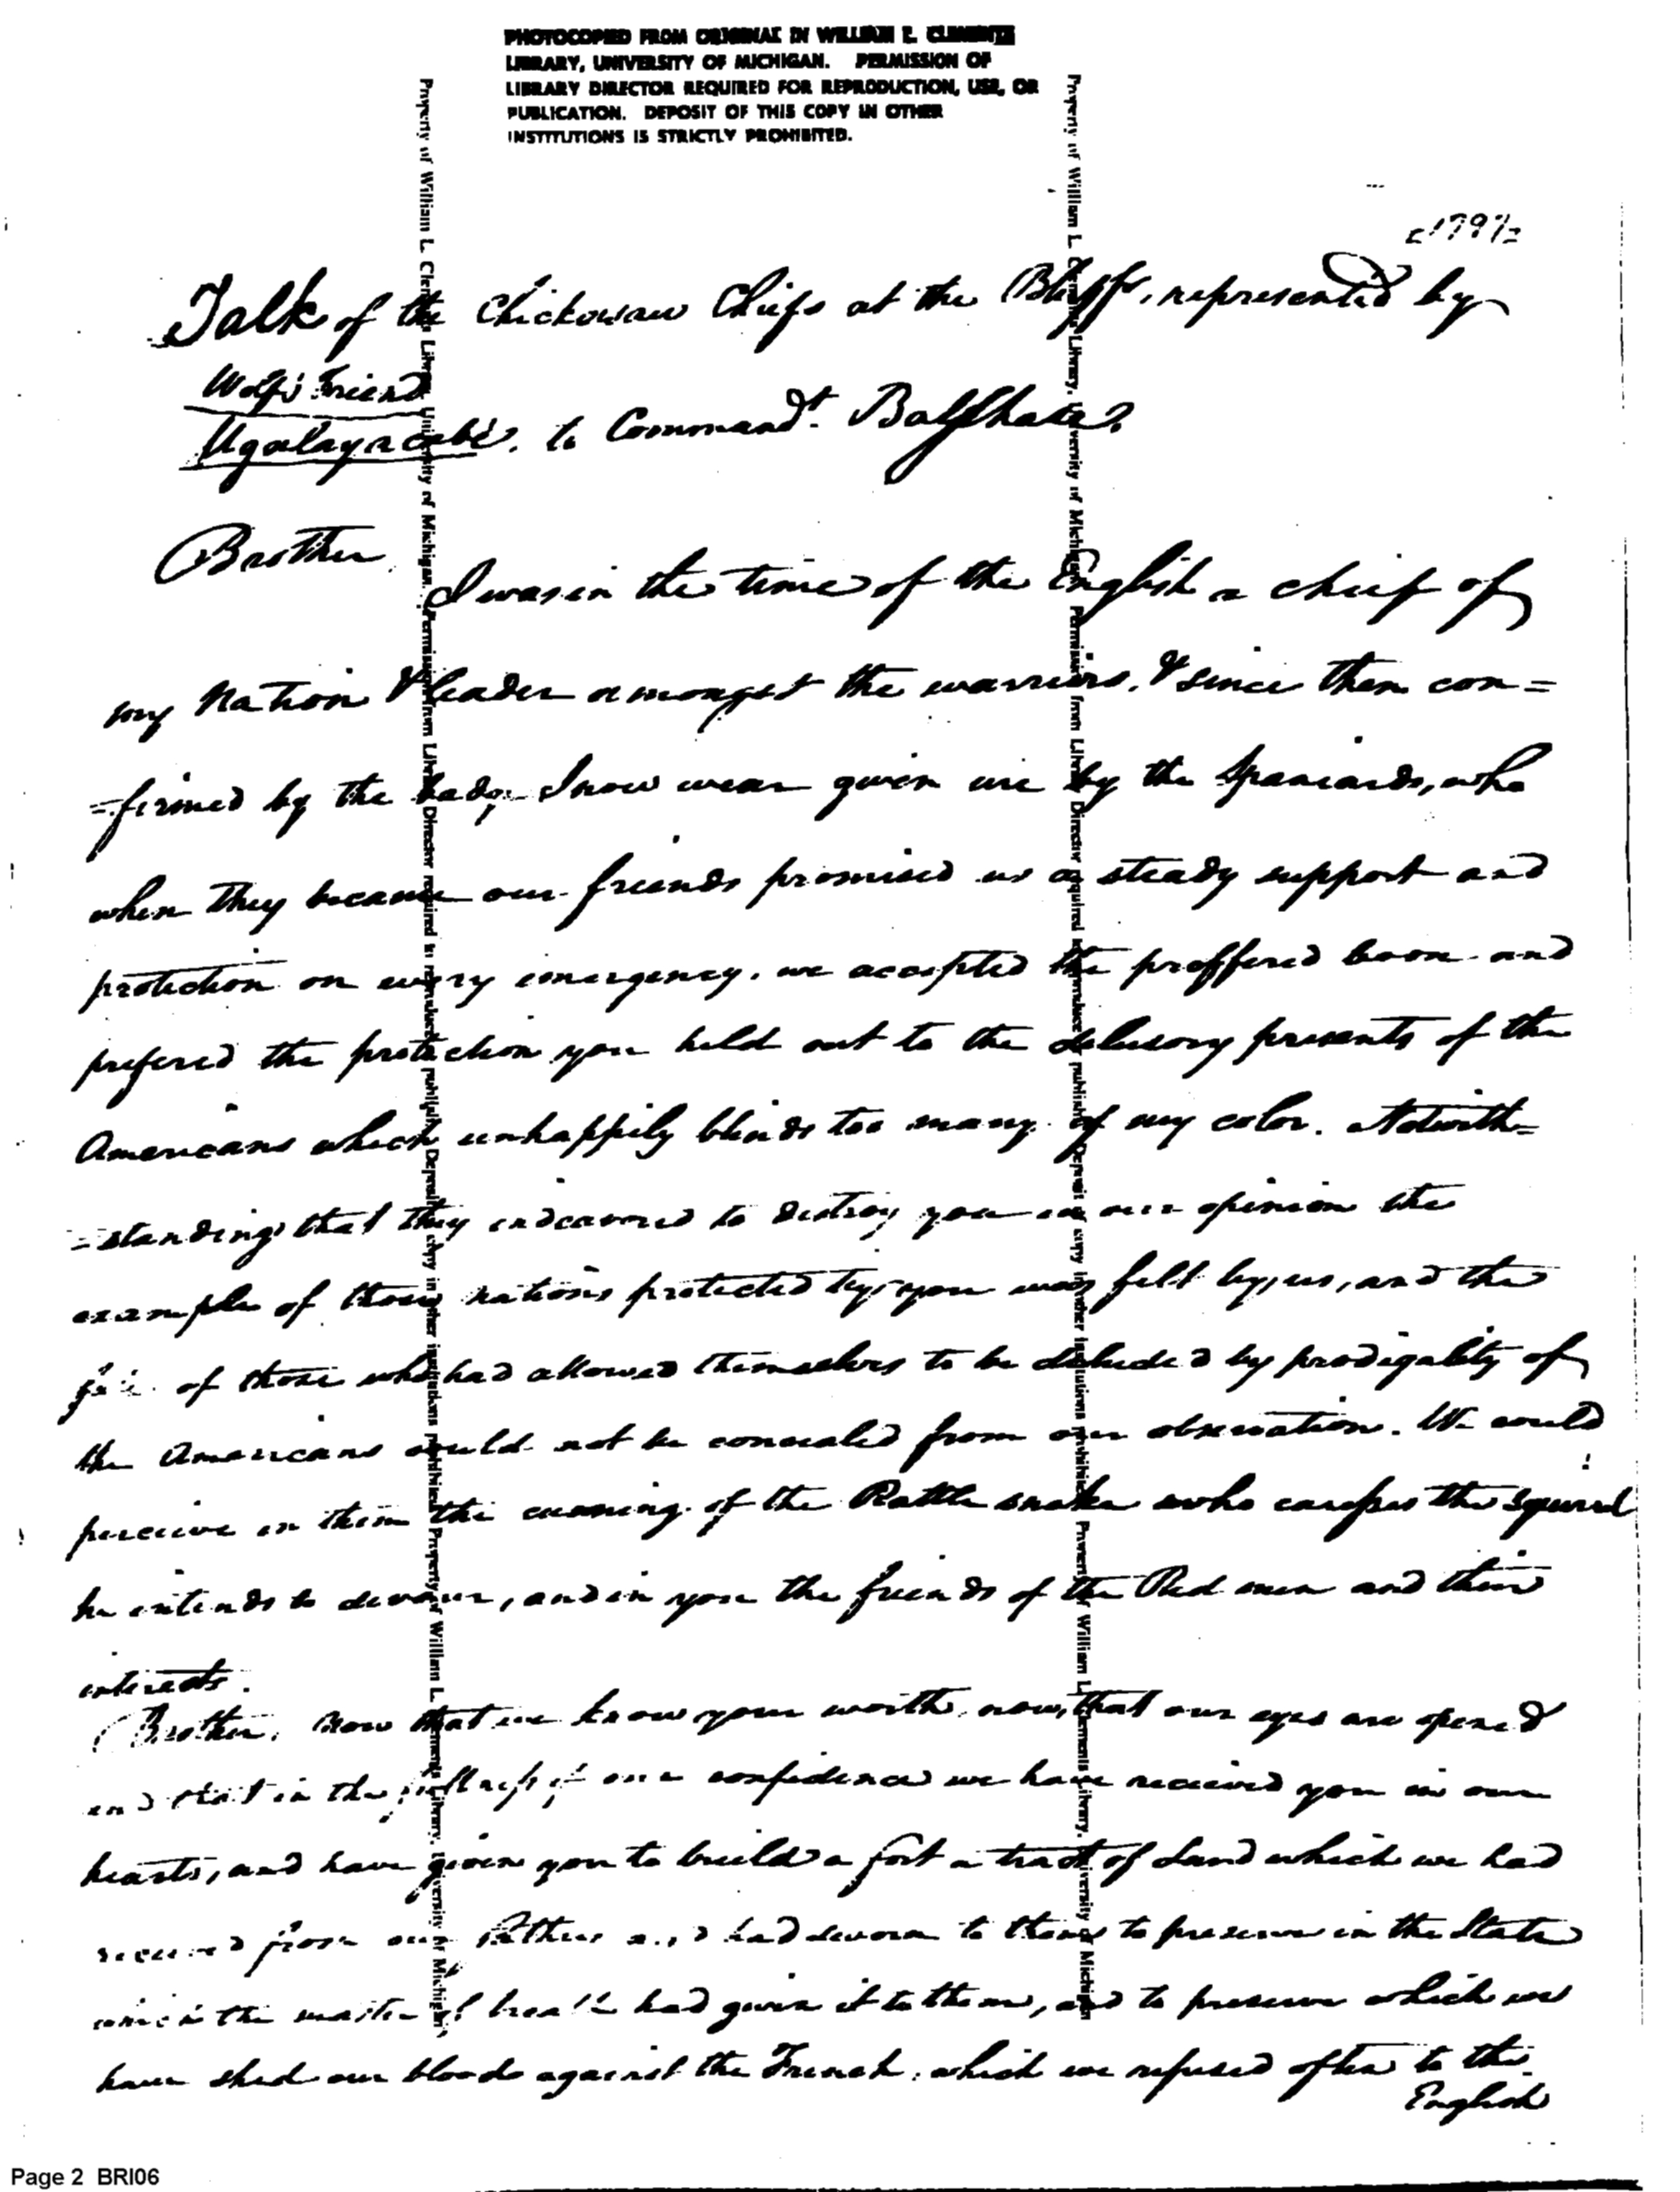 PHOTOCOPIED FROM ORIGINAL IN WILLIAM L. CLEMENTS
LIBRARY, UNIVERSITY OF MICHIGAN. PERMISSION OF
LIBRARY DIRECTOR REQUIRED FOR REPRODUCTION, USE, OR
PUBLICATION. DEPOSIT OF THIS COPY IN OTHER
INSTITUTIONS IS STRICTLY PROHIBITED.
Property of William L. Clements Library, University of Michigan. Permission from Library Director required to reproduce, publish. Deposit copy in other institutions prohibited. Property of William L. Clements Library, University of Michigan
Property of William L. Clements Library, University of Michigan. Permission from Library Director required to reproduce, publish. Deposit copy in other institutions prohibited. Property of William L. Clements Library, University of Michigan
1797
Talk of the Chickowsaw Chiefs at the Bluffs, represented by
Wolf's Friend
Ugalayacabé, to Commandt.
Brother,
I was in the time of the English a chief of
my Nation & leader amongst the warriors, & since then con=
=firmed by the badge I now wear given me by the Spaniards, who
when they became our friends promised us a steady support and
protection on every emergency. we accepted the proffered boon and
prefered the protection you held out to the delusory presents of the
Americans which unhappily blinds too many of my color. Notwith=
=standing that they endeavored to destroy you in our opinion the
example of those nations protected by you was felt by us, and the
of those who had allowed themselves to be deluded by prodigality of
the Americans could not be concealed from our observation. We could
perceive in them the cunning of the Rattle snake who caresses the squirrel
he intends to devour, and in you the friends of the Red men and their
interests.
Brother, Now that we know your worth, now, that our eyes are opened
and that in the fullness of our confidence we have received you in our
hearts, and have given you to build a fort a tract of Land which we had
received from our Fathers and had sworn to them to preserve in the State
which the master of breath had given it to them, and to preserve which we
have shed our bloods against the French, which we refused often to the
English
Page 2 BRI06